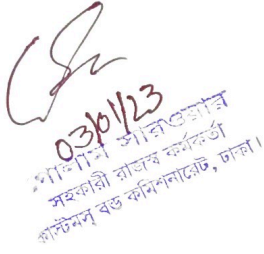 03/01/23
সারওয়ার
সহকারী রাজস্ব কর্মকর্তা
কাস্টমস্ বন্ড কমিশনারেট, ঢাকা।